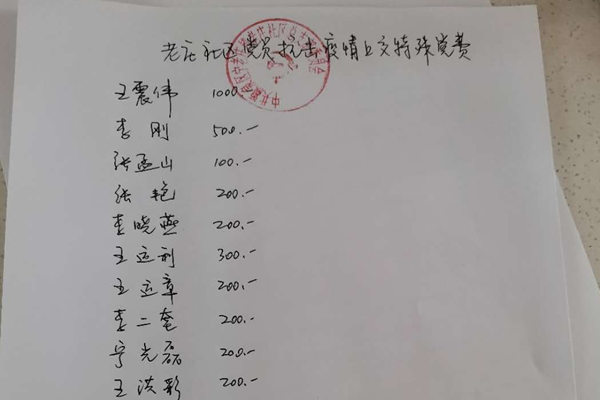 老庄社区党员抗击疫情上交特殊党费
王震伟 1000.-
李刚 500.-
张孟山 100.-
张艳 200.-
李晓燕 200.-
王运利 300.-
王运章 200.-
李二奎 200.-
宁光磊 200.-
王洪彩 200.-